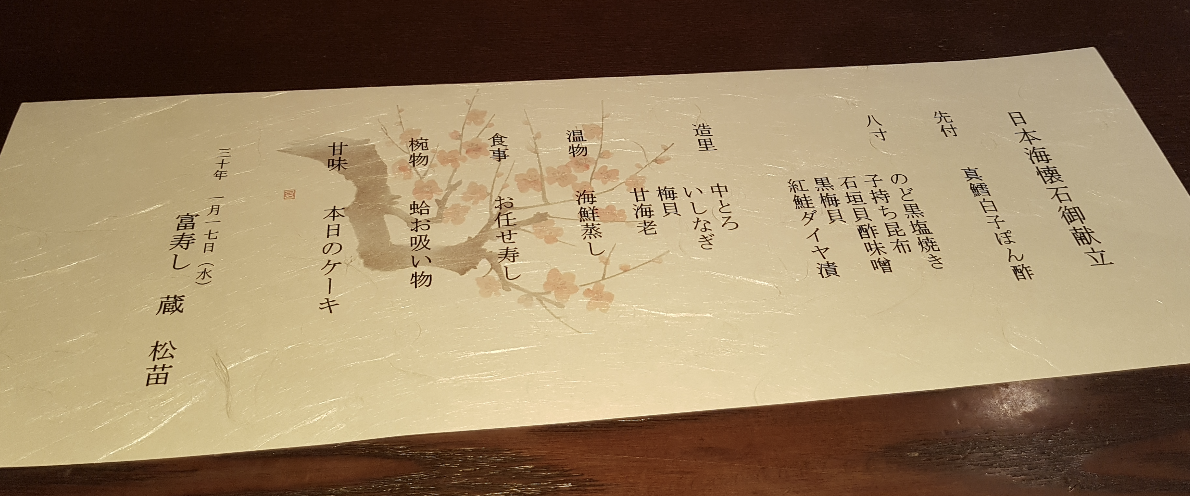 日本海懐石御献立
先付
真鱈白子ぽん酢
八寸
のど黒塩焼き
子持ち昆布
石垣貝酢味噌
黒梅貝
紅鮭ダイヤ漬
造里
中とろ
いしなぎ
梅貝
甘海老
温物
海鮮蒸し
食事
お任せ寿し
椀物
蛤お吸い物
甘味
本日のケーキ
三十年 一月一七日（水）
富寿し 蔵 松苗